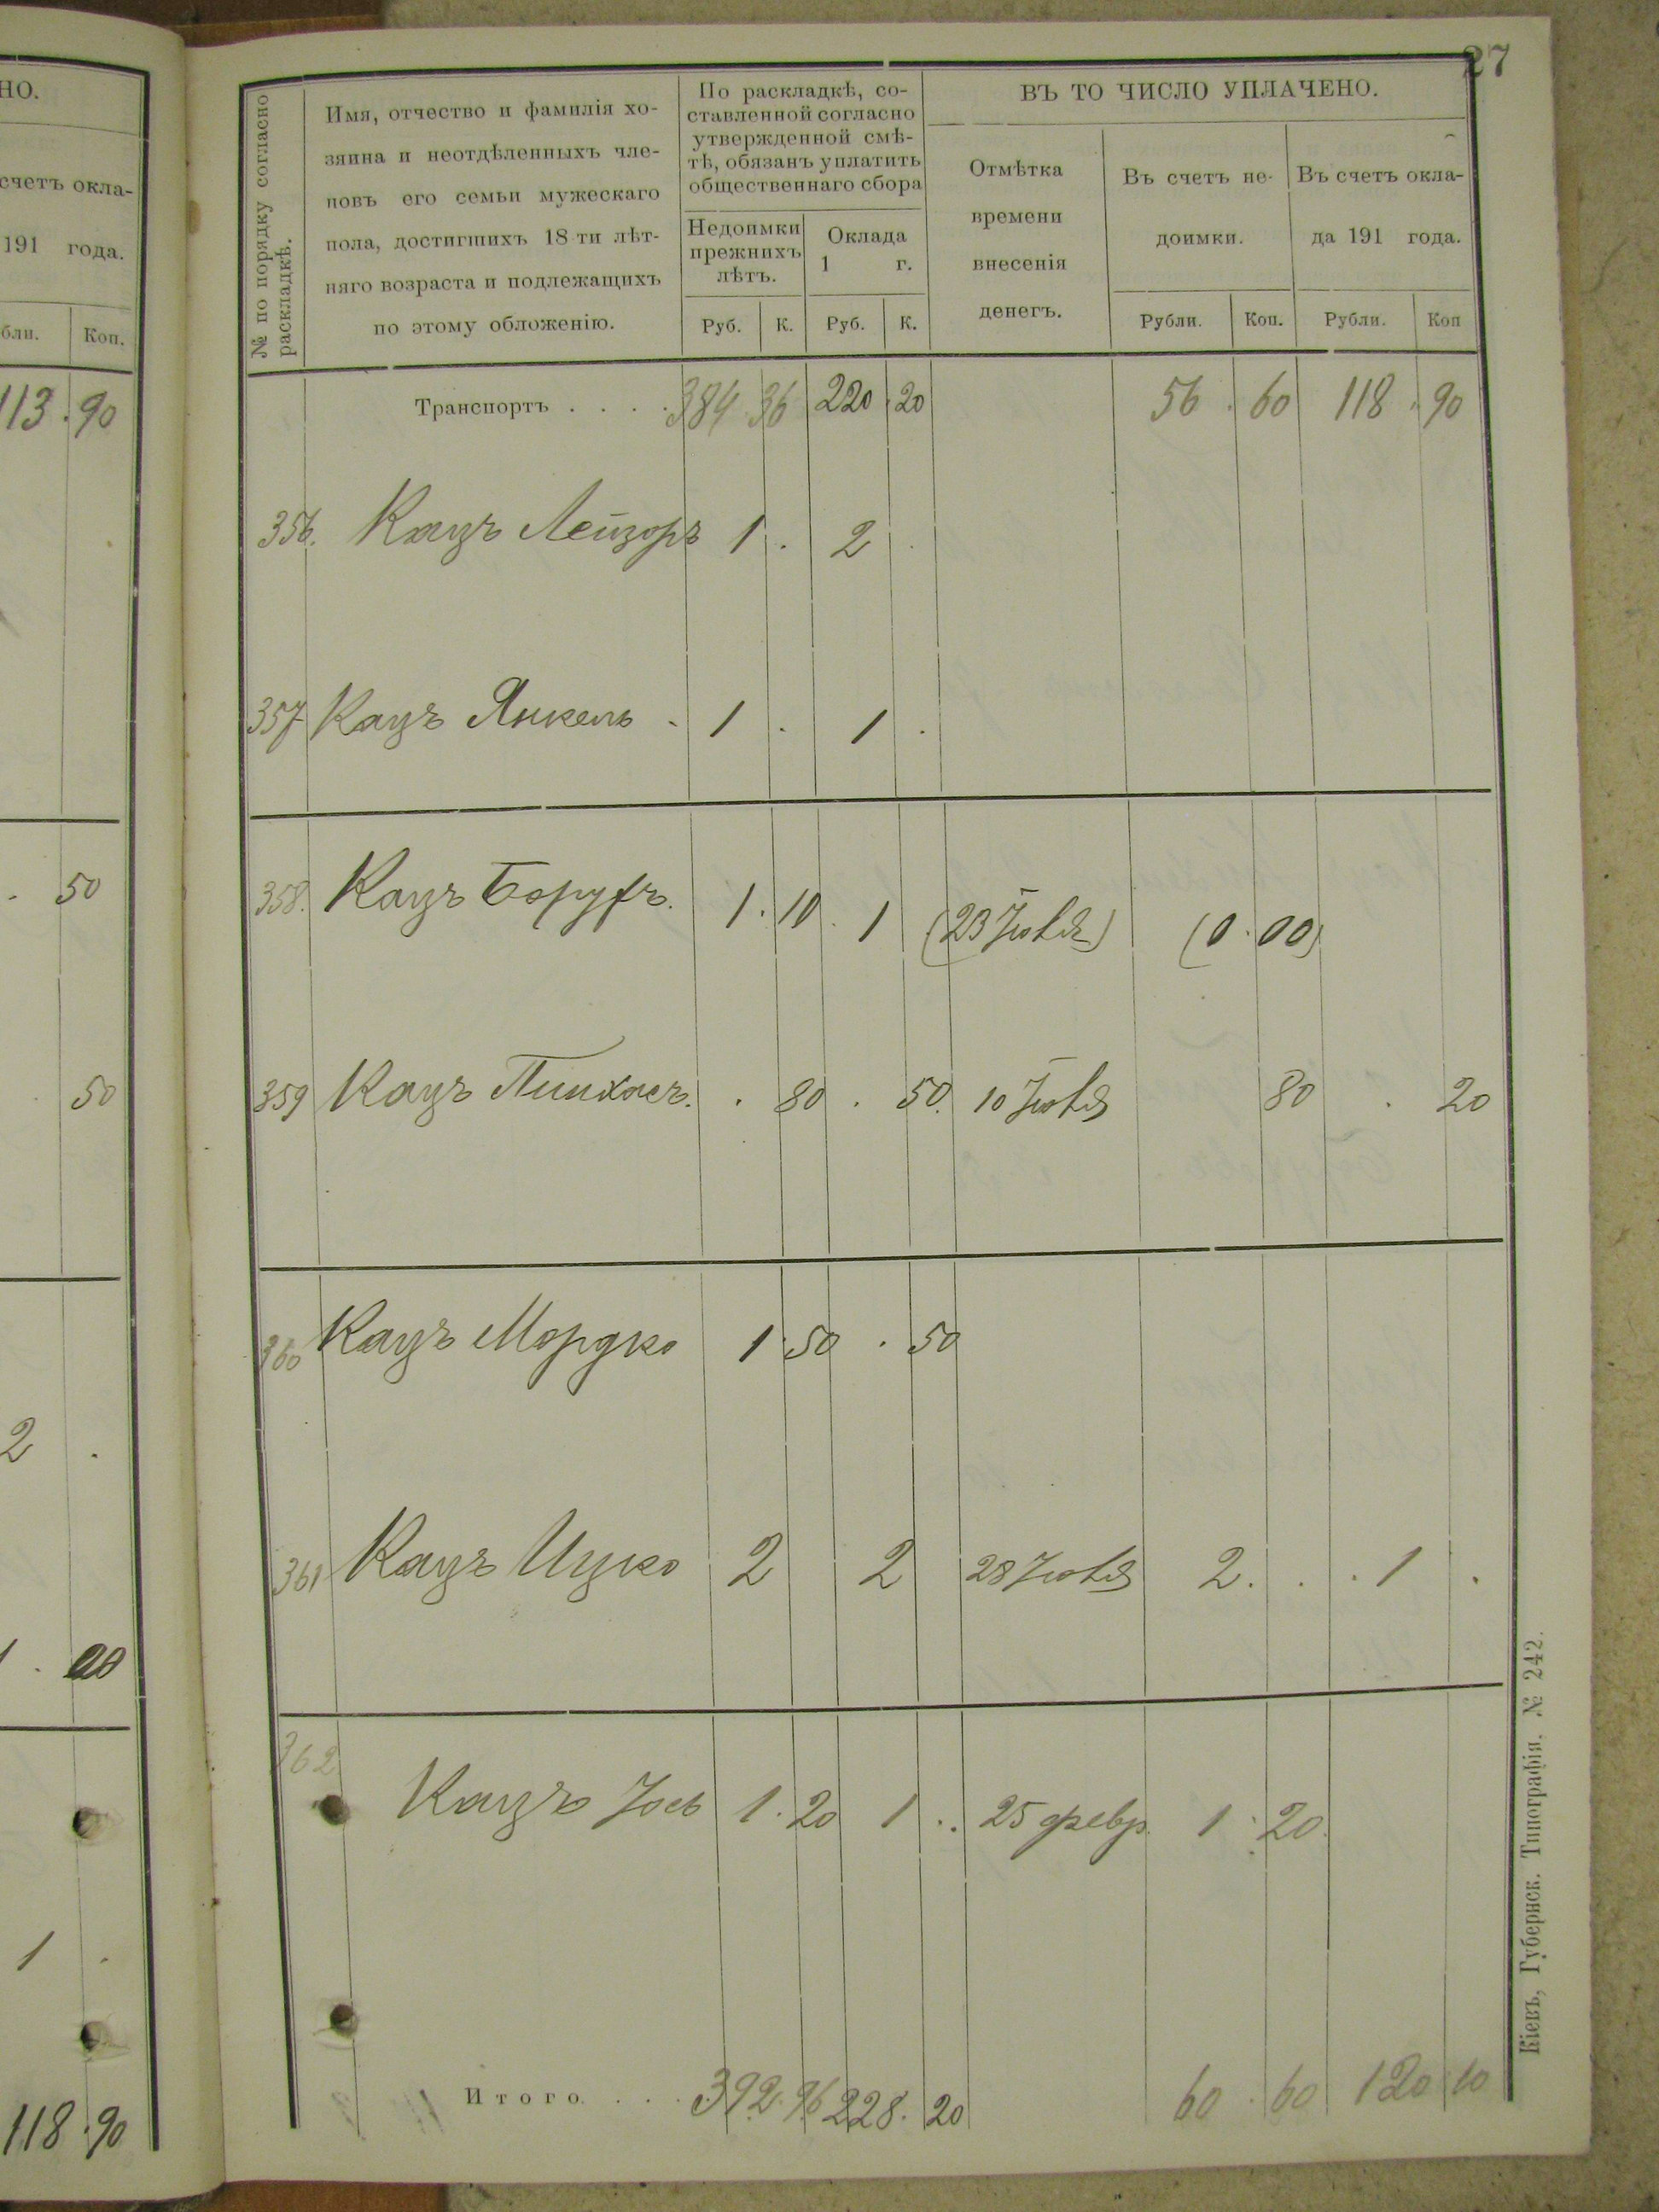 НО.
счетъ окла-
191 года.
бли. Коп.
113 . 90
. 50
. 50
2 .
1 .
1 .
118 . 90
27
№ по порядку согласно
раскладкѣ.
Имя, отчество и фамилія хо-
зяина и неотдѣленныхъ чле-
новъ его семьи мужескаго
пола, достигшихъ 18-ти лѣт-
няго возраста и подлежащихъ
по этому обложенію.
По раскладкѣ, со-
ставленной согласно
утвержденной смѣ-
тѣ, обязанъ уплатить
общественнаго сбора
Недоимки
прежнихъ
лѣтъ.
Оклада
1 г.
Руб. К. Руб. К.
ВЪ ТО ЧИСЛО УПЛАЧЕНО.
Отмѣтка
времени
внесенія
денегъ.
Въ счетъ не-
доимки.
Въ счетъ окла-
да 191 года.
Рубли. Коп. Рубли. Коп
Транспортъ . . . . 384 36 220 . 20 56 . 60 118 . 90
356. Кацъ Лейзоръ 1 . 2 .
357 Кацъ Янкель - 1 . 1 .
358. Кацъ Борухъ. 1 . 10 . 1 (23 Іюля) (0 . 00)
359 Кацъ Пинхасъ. . 80 . 50. 10 Іюля 80 . 20
360 Кацъ Мордко 1 . 50 . 50
361 Кацъ Ицко 2 2 28 Іюля 2 . . . 1 .
362
Кацъ Іось 1 . 20 1 . . 25 февр. 1 . 20.
Итого . . . . 392 . 96 228 . 20 60 . 60 120 10
Кіевъ, Губернск. Типографія. № 242.